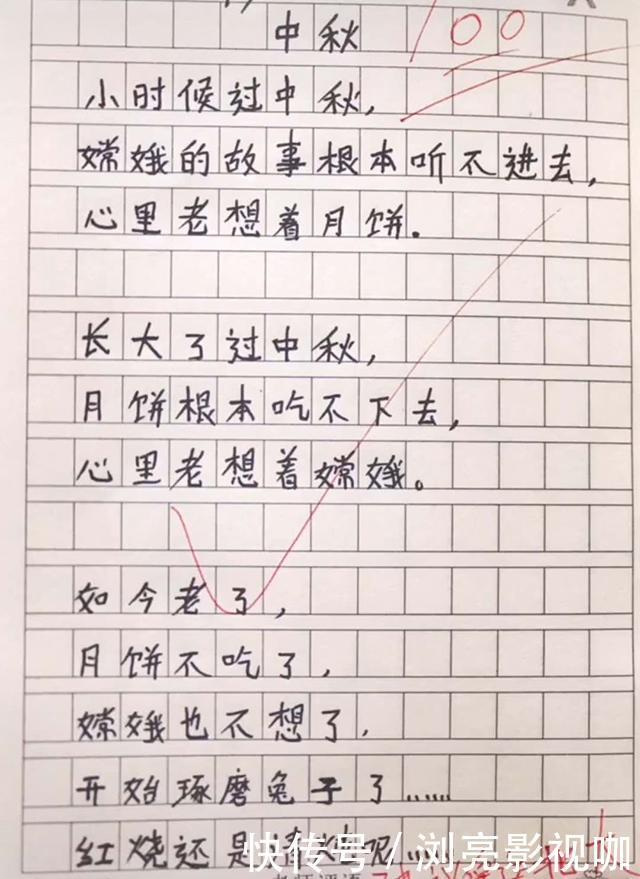 中秋 100
小时候过中秋,
嫦娥的故事根本听不进去,
心里老想着月饼.
长大了过中秋,
月饼根本吃不下去,
心里老想着嫦娥。
如今老了,
月饼不吃了,
嫦娥也不想了,
开始琢磨兔子了……
红烧还是 呢
快传号/浏亮影视咖